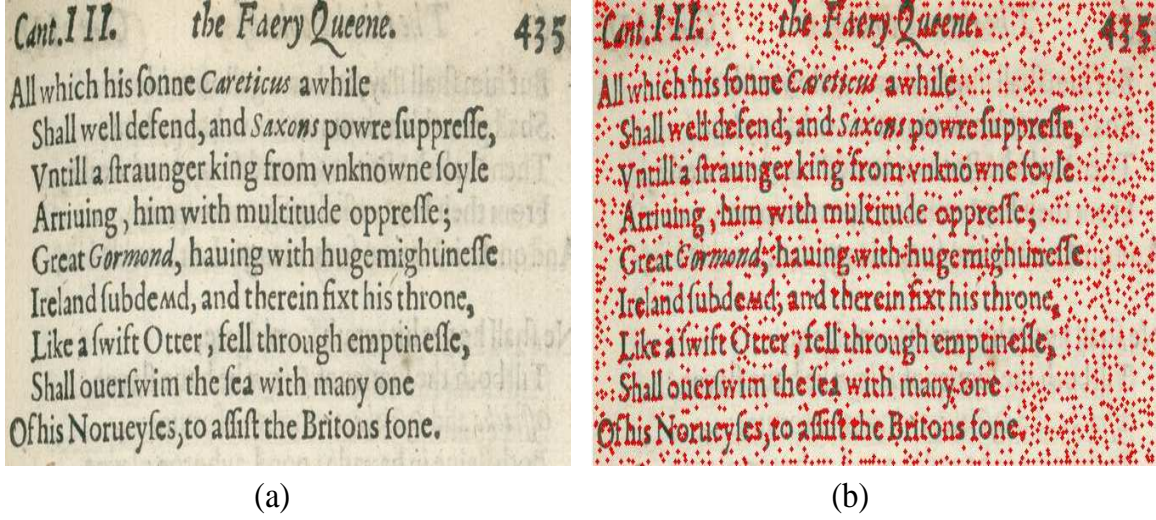 Cant.III. the Faery Queene. 435
All which his ſonne Careticus awhile
Shall well defend, and Saxons powre ſuppreſſe,
Vntill a ſtraunger king from vnknowne ſoyle
Arriuing, him with multitude oppreſſe;
Great Gormond, hauing with huge mightineſſe
Ireland ſubdewd, and therein fixt his throne,
Like a ſwift Otter, fell through emptineſſe,
Shall ouerſwim the ſea with many one
Of his Norueyſes, to aſſiſt the Britons fone.
(a)
Cant.III. the Faery Queene. 435
All which his ſonne Careticus awhile
Shall well defend, and Saxons powre ſuppreſſe,
Vntill a ſtraunger king from vnknowne ſoyle
Arriuing, him with multitude oppreſſe;
Great Gormond, hauing with huge mightineſſe
Ireland ſubdewd, and therein fixt his throne,
Like a ſwift Otter, fell through emptineſſe,
Shall ouerſwim the ſea with many one
Of his Norueyſes, to aſſiſt the Britons fone.
(b)